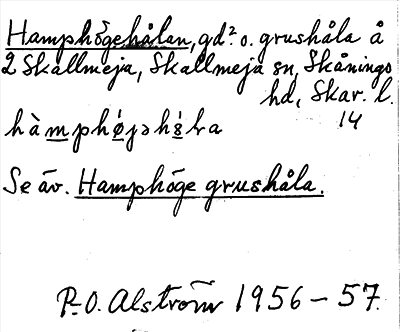 Hamphögehålan, gd². o. grushåla å
2 Skallmeja, Skallmeja sn, Skånings
hd, Skar. l.
14
hàmphøjəh
Se äv. Hamphöge grushåla.
P.-O. Alström 1956-57.